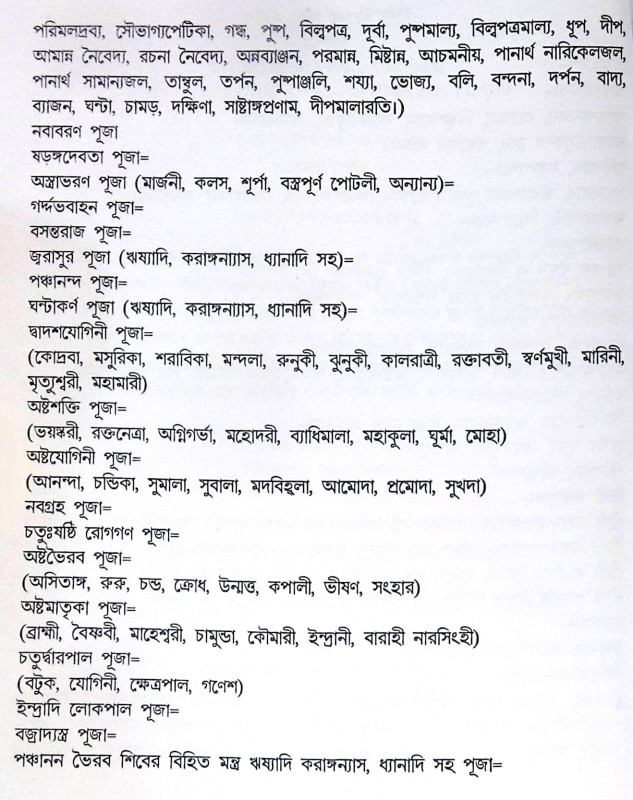 পরিমলদ্রব্য, সৌভাগ্যপেটিকা, গন্ধ, পুষ্প, বিল্বপত্র, দূর্বা, পুষ্পমাল্য, বিল্বপত্রমাল্য, ধূপ, দীপ,
আমান্ন নৈবেদ্য, রচনা নৈবেদ্য, অন্নব্যাঞ্জন, পরমান্ন, মিষ্টান্ন, আচমনীয়, পানার্থ নারিকেলজল,
পানার্থ সামান্যজল, তাম্বুল, তর্পন, পুষ্পাঞ্জলি, শয্যা, ভোজ্য, বলি, বন্দনা, দর্পন, বাদ্য,
ব্যাজন, ঘন্টা, চামড়, দক্ষিণা, সাষ্টাঙ্গপ্রণাম, দীপমালারতি।)
নবাবরণ পূজা
ষড়ঙ্গদেবতা পূজা=
অস্ত্রাভরণ পূজা (মার্জনী, কলস, শূর্পা, বস্ত্রপূর্ণ পোটলী, অন্যান্য)=
গর্দ্দভবাহন পূজা=
বসন্তরাজ পূজা=
জ্বরাসুর পূজা (ঋষ্যাদি, করাঙ্গন্যাস, ধ্যানাদি সহ)=
পঞ্চানন্দ পূজা=
ঘন্টাকর্ণ পূজা (ঋষ্যাদি, করাঙ্গন্যাস, ধ্যানাদি সহ)=
দ্বাদশযোগিনী পূজা=
(কোদ্রবা, মসুরিকা, শরাবিকা, মন্দলা, রুনুকী, ঝুনুকী, কালরাত্রী, রক্তাবতী, স্বর্ণমুখী, মারিনী,
মৃত্যুশ্বরী, মহামারী)
অষ্টশক্তি পূজা=
(ভয়ঙ্করী, রক্তনেত্রা, অগ্নিগর্ভা, মহোদরী, ব্যাধিমালা, মহাকুলা, ঘূর্মা, মোহা)
অষ্টযোগিনী পূজা=
(আনন্দা, চন্ডিকা, সুমালা, সুবালা, মদবিহ্বলা, আমোদা, প্রমোদা, সুখদা)
নবগ্রহ পূজা=
চতুঃষষ্ঠি রোগগণ পূজা=
অষ্টভৈরব পূজা=
(অসিতাঙ্গ, রুরু, চন্ড, ক্রোধ, উন্মত্ত, কপালী, ভীষণ, সংহার)
অষ্টমাতৃকা পূজা=
(ব্রাহ্মী, বৈষ্ণবী, মাহেশ্বরী, চামুন্ডা, কৌমারী, ইন্দ্রানী, বারাহী নারসিংহী)
চতুর্দ্বারপাল পূজা=
(বটুক, যোগিনী, ক্ষেত্রপাল, গণেশ)
ইন্দ্রাদি লোকপাল পূজা=
বজ্রাদ্যস্ত্র পূজা=
পঞ্চানন ভৈরব শিবের বিহিত মন্ত্র ঋষ্যাদি করাঙ্গন্যাস, ধ্যানাদি সহ পূজা=